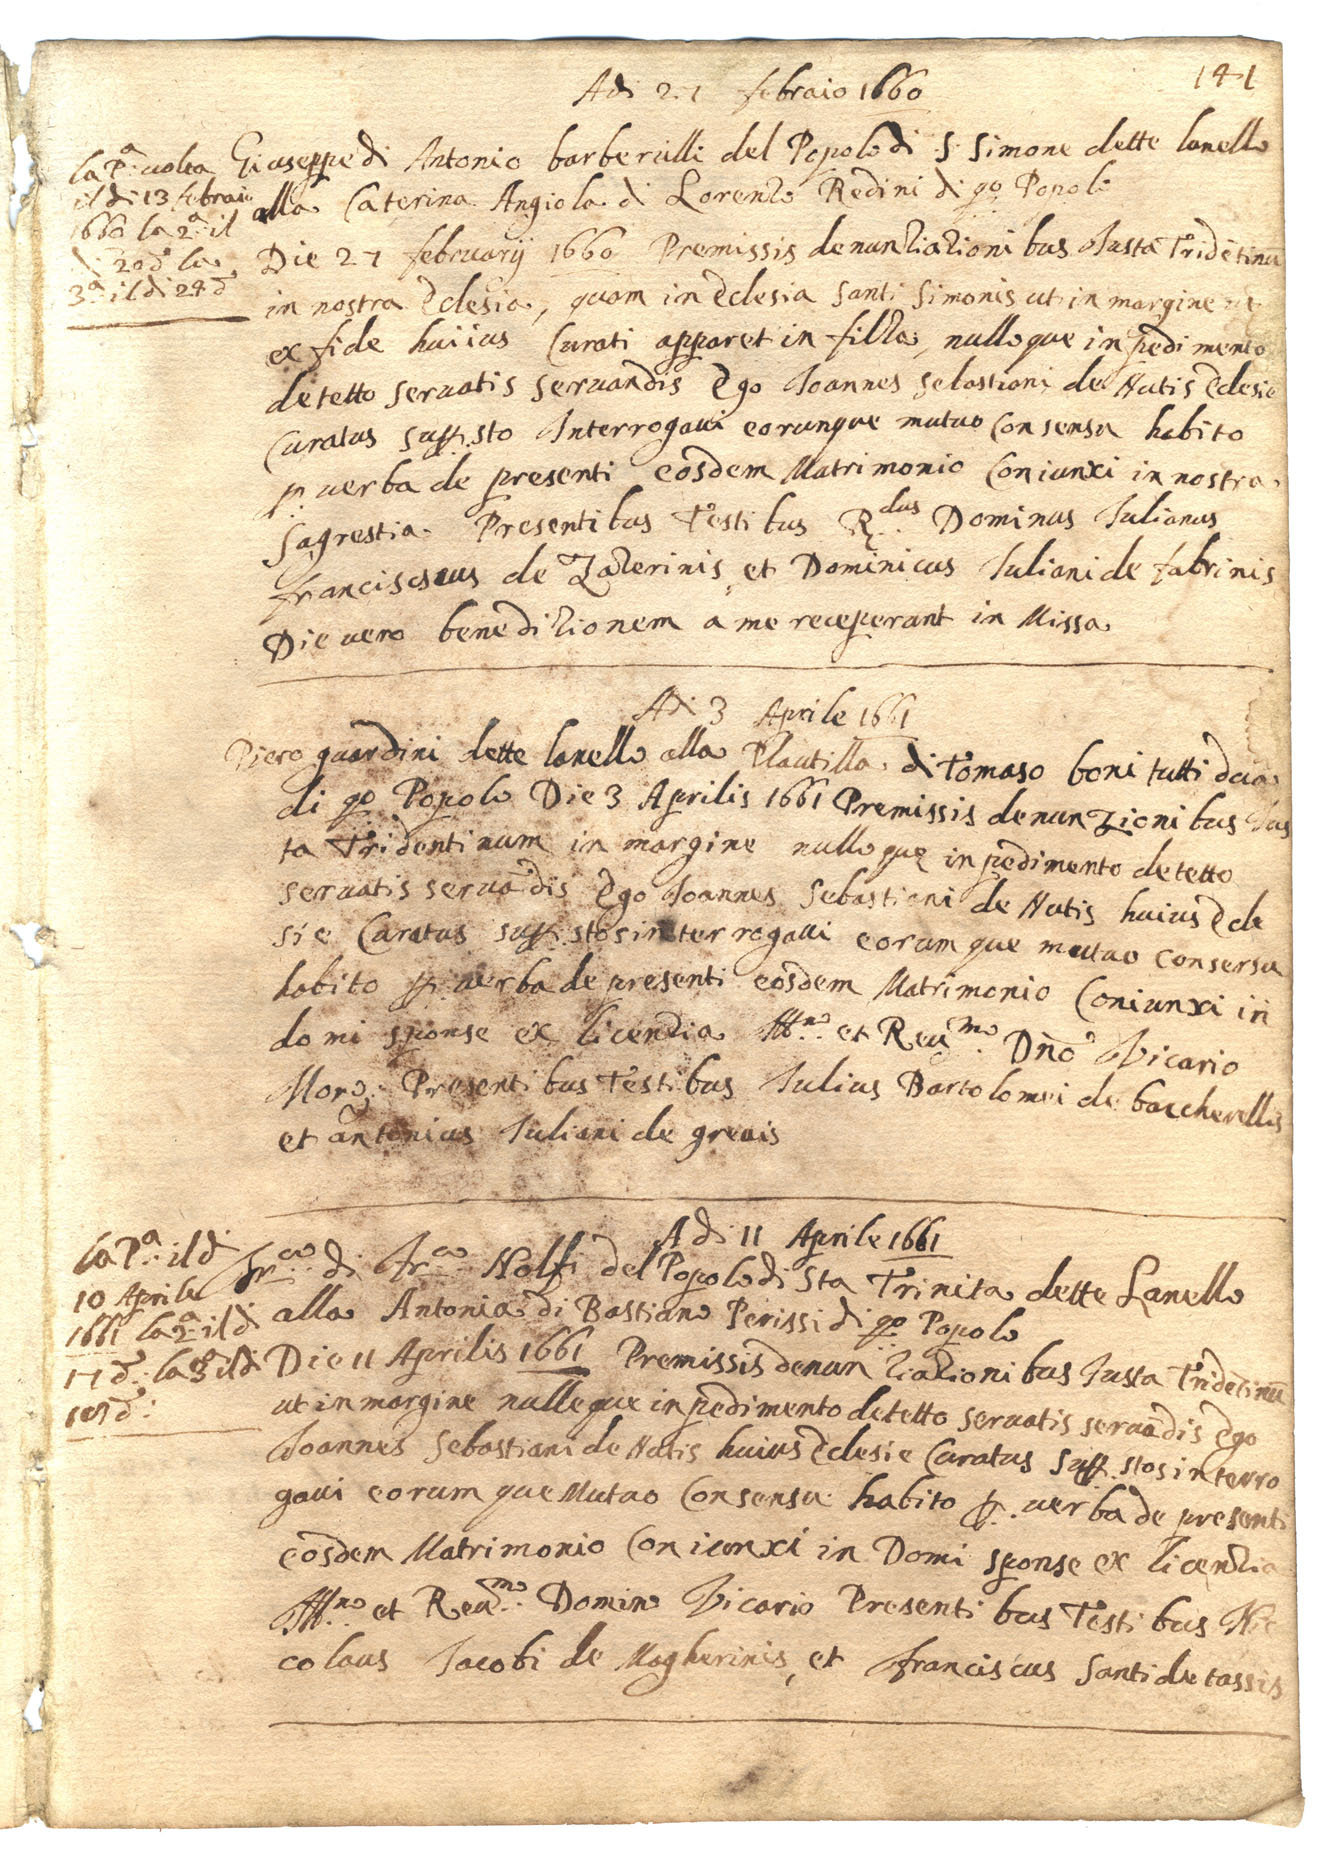 141
Adi 27 febraio 1660
la Pa uolta
il di 13 febraio
1660 la 2a il
di 20 do la
3a il di 24 do
Giuseppe di Antonio barberulli del Popolo di S Simone dette lanello
alla Caterina Angiola di Lorenzo Redini di qo Popolo
Die 27 februarij 1660 Premissis denunziazionibus Justa Tridētinū
in nostra Eclesia, quam in Eclesia Santi Simonis ut in margine
ex fide huiius Curati apparet in filza, nulloque inpedimento
detetto seruatis seruandis Ego Joannes Sebastiani de Nutis Eclesie
Curatus supsto Interrogaui eorunque mutuo Consensu habito
p. uerba de presenti eosdem Matrimonio Coniunxi in nostra
Sagrestia. Presentibus Testibus Rdus Dominus Iulianus
francischus de Zazerinis, et Dominicus Iuliani de fabrinis
Die uero benedizionem a me receperant in Missa
Adi 3 Aprile 1661
Piero guardini dette lanello alla Plautilla di Tomaso boni tutti dua
di qo Popolo Die 3 Aprilis 1661 Premissis denunzionibus Jus
ta Tridentinum in margine nulloque inpedimento detetto
seruatis seruādis Ego Joannes Sebastiani de Nutis huius Ecle
sie Curatus supstos interrogaui eorumque mutuo consensu
habito p. uerba de presenti eosdem Matrimonio Coniunxi in
domi sponse ex licenzia Illmo et Reumo Dño Vicario
Presentibus Testibus Iulius Bartolomei de baccherellis
et antonius Iuliani de greuis
Adi 11 Aprile 1661
la Pa il di
10 Aprile
1661 la 2a il di
17 do la 3a il di
do
Frco di Frco Nolfi del Popolo di Sta Trinita dette Lanello
alla Antonia di Bastiano Perissi di qo Popolo
Die 11 Aprilis 1661 Premissis denunziazionibus Justa Tridētinū
ut in margine nulleque inpedimento detetto seruatis seruādis Ego
Joannes Sebastiani de Nutis huius Eclesie Curatus supstos interro
gaui eorumque Mutuo Consensu habito p. uerba de presenti
eosdem Matrimonio Coniunxi in Domi sponse ex licenzia
Illmo et Reumo Domino Vicario Presentibus Testibus Nic
colaus Jacobi de Magherinis, et franciscus Santi de tassis